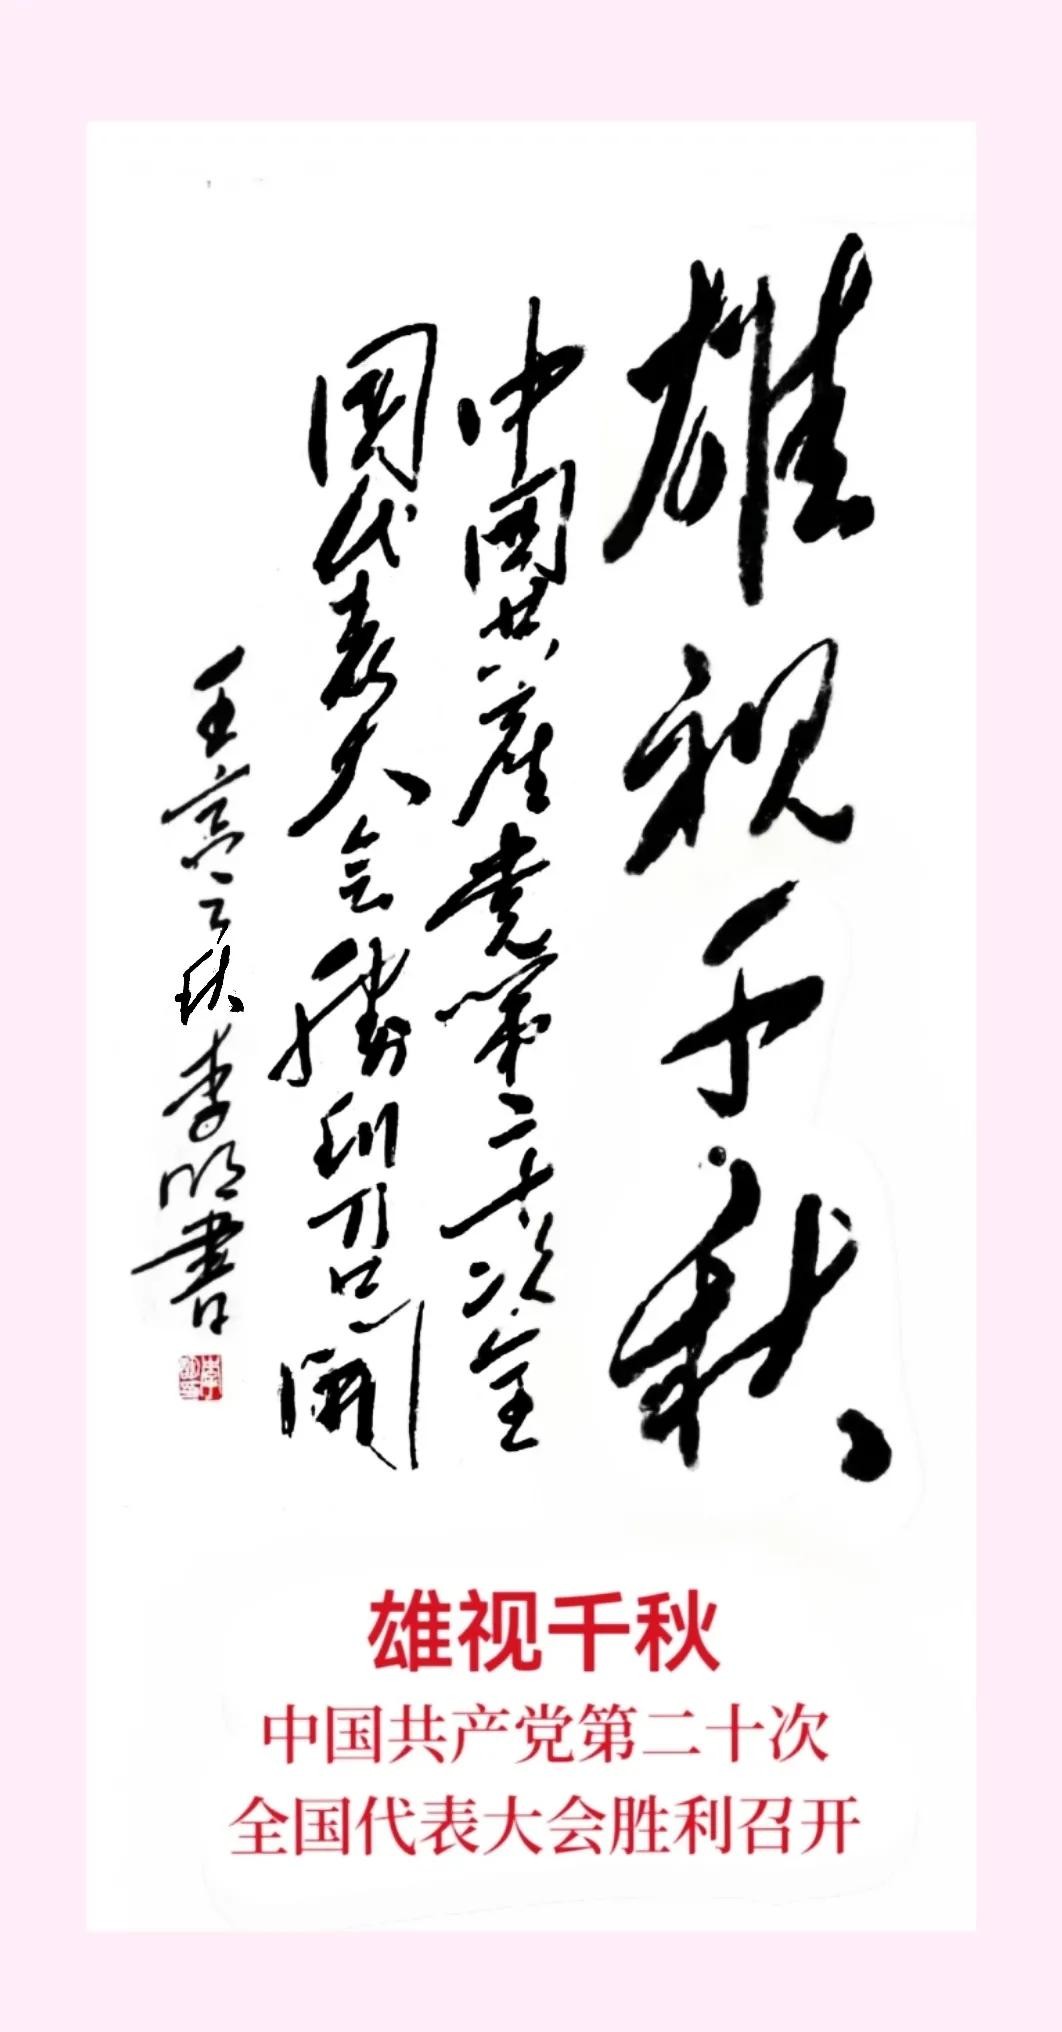 雄视千秋
中国共产党第二十次全
国代表大会勝利召開
壬寅之秋李明書
雄视千秋
中国共产党第二十次
全国代表大会胜利召开